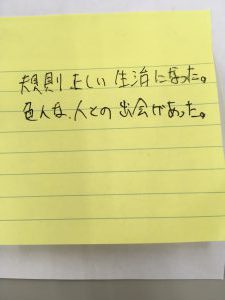 規則正しい生活になった。
色んな人との出会があった。